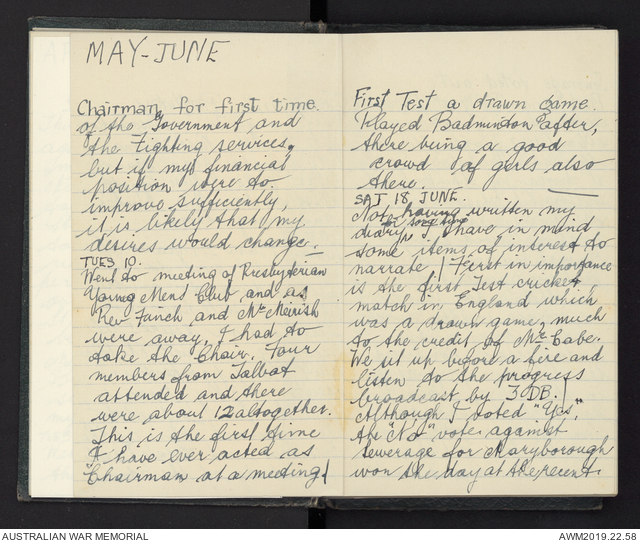 MAY-JUNE
Chairman for first time.
of the Government and
the Fighting services,
but if my financial
position were to
improve sufficiently,
it is likely that my
desires would change.
TUES 10.
Went to meeting of Presbyterian
Young Mens Club and as
Rev Funch and Mr McMeirick
were away, I had to
take the Chair. Four
members from Talbot
attended and there
were about 12 altogether.
This is the first time
I have ever acted as
"Chairman at a meeting!
First Test a drawn game.
Played Badminton after,
there being a good
crowd of girls also
there.
SAT 18 JUNE.
Not having written my
diary for some time I have in mind
some items of interest to
narrate! First in importance
is the first Test cricket
match in England which
was a drawn game, much
to the credit of McCabe.
We sit up before a fire and
listen to the progress
broadcast by 3DB.
Although I voted "Yes",
the "No" votes against
sewerage for Maryborough
won the day at the recent
AUSTRALIAN WAR MEMORIAL
AWM2019.22.58